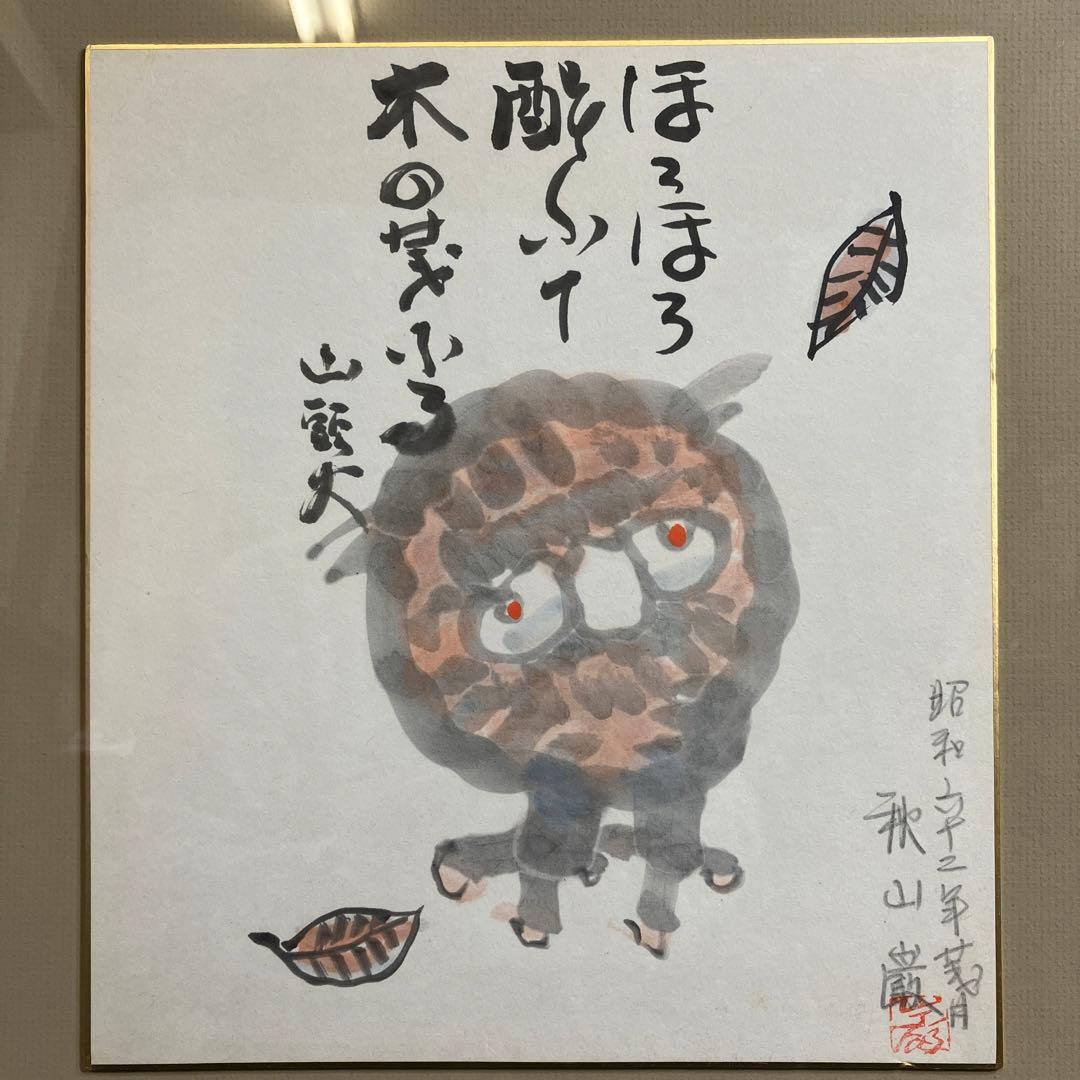 ほろほろ
酔ふて
木の葉ふる
山頭火
昭和六十二年葉月
秋山巌